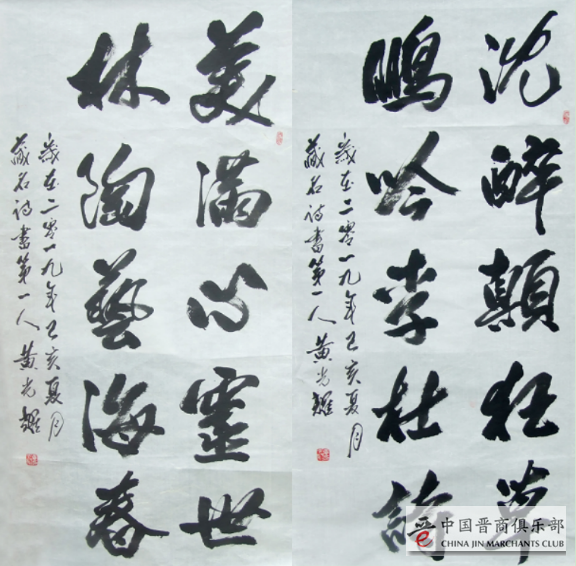 沈醉顛狂草
鵬吟李杜詩
歲在二零一九年己亥夏月
藏名詩書第一人 黄光耀
美滿心靈世
林陶藝海春
歲在二零一九年己亥夏月
藏名詩書第一人 黄光耀
中国晋商俱乐部
CHINA JIN MARCHANTS CLUB